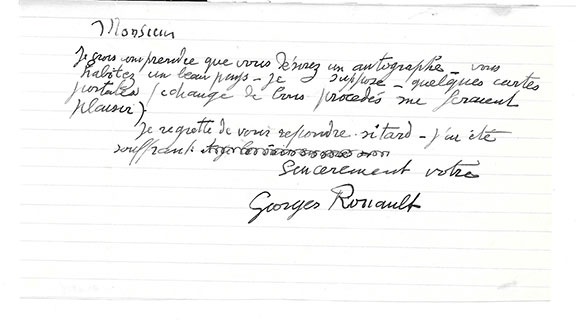 Monsieur
Je crois comprendre que vous désirez un autographe - vous
habitez un beau pays - je suppose - quelques cartes
postales (échange de bons procédés me feraient
plaisir)
Je regrette de vous repondre si tard - j'ai été
souffrant
Sincerement votre
Georges Rouault